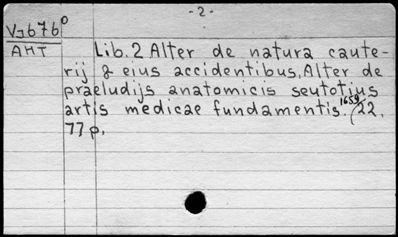 - 2 -
VJ676°
AMT Lib. 2 Alter de natura caute-
rij & eius accidentibus. Alter de
praeludijs anatomicis seutotius
artis medicae fundamentis. 1659 (22.
77 p.